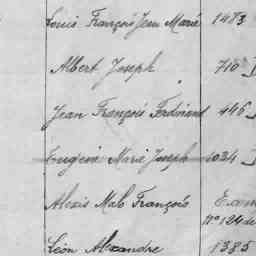 Louis François Jean Marie 1473
Albert Joseph 710
Jean François Ferdinand 446
Eugène Marie Joseph 1034
Alexis Malo François Exem
N° 124 de
Léon Alexandre 1385